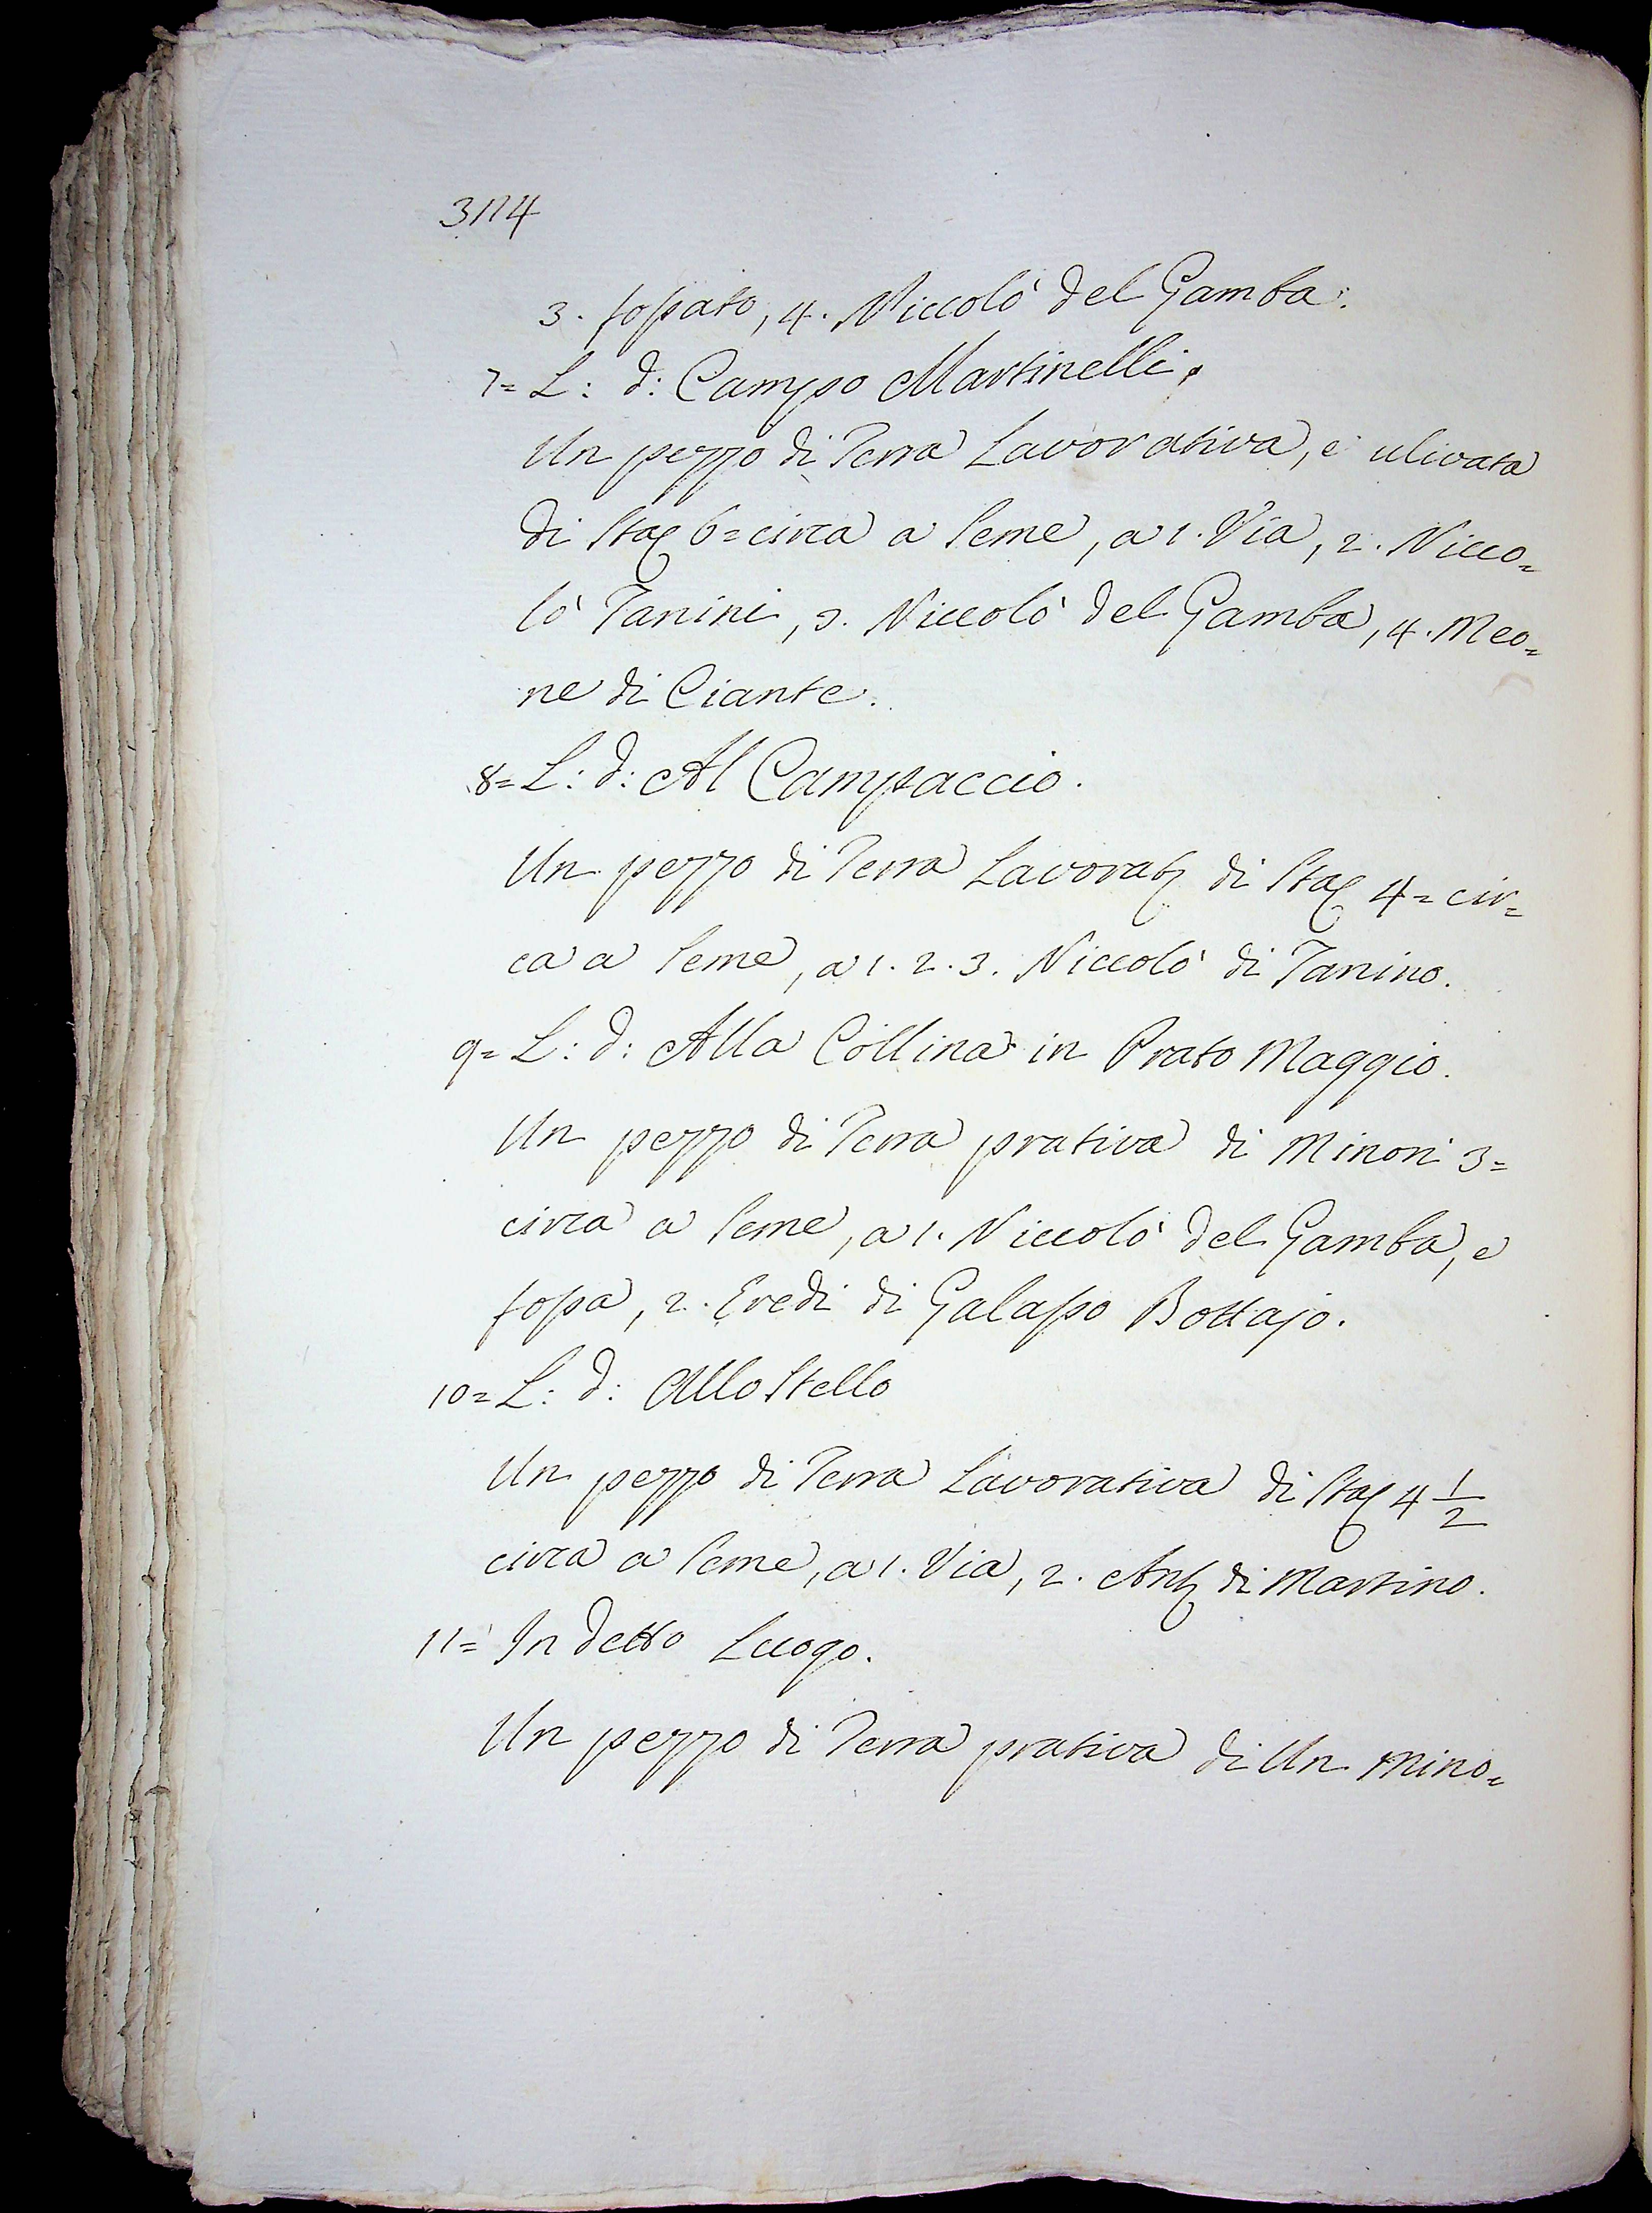 3114
3. fossato, 4. Niccolò del Gamba.
7= L: d: Campo Martinelli.
Un pezzo di Terra Lavorativa, e ulivata
di Sta͠ 6= circa a Seme, a 1. Via, 2. Nicco=
lò Tanini, 3. Niccolò del Gamba, 4. Meo=
ne di Ciante.
8= L: d: Al Campaccio.
Un pezzo di Terra Lavorat͠ di Sta͠ 4= cir=
ca a Seme, a 1. 2. 3. Niccolò di Tanino.
9= L: d: Alla Collina in Prato Maggio.
Un pezzo di Terra prativa di Minori 3=
circa a Seme, a 1. Niccolò del Gamba, e
fossa, 2. Eredi di Galasso Bottajo.
10= L: d: Allo Stello
Un pezzo di Terra Lavorativa di Sta͠ 4 1/2
circa a Seme, a 1. Via, 2. Ant͠ di Martino.
11= In detto Luogo.
Un pezzo di Terra prativa di Un Mino=